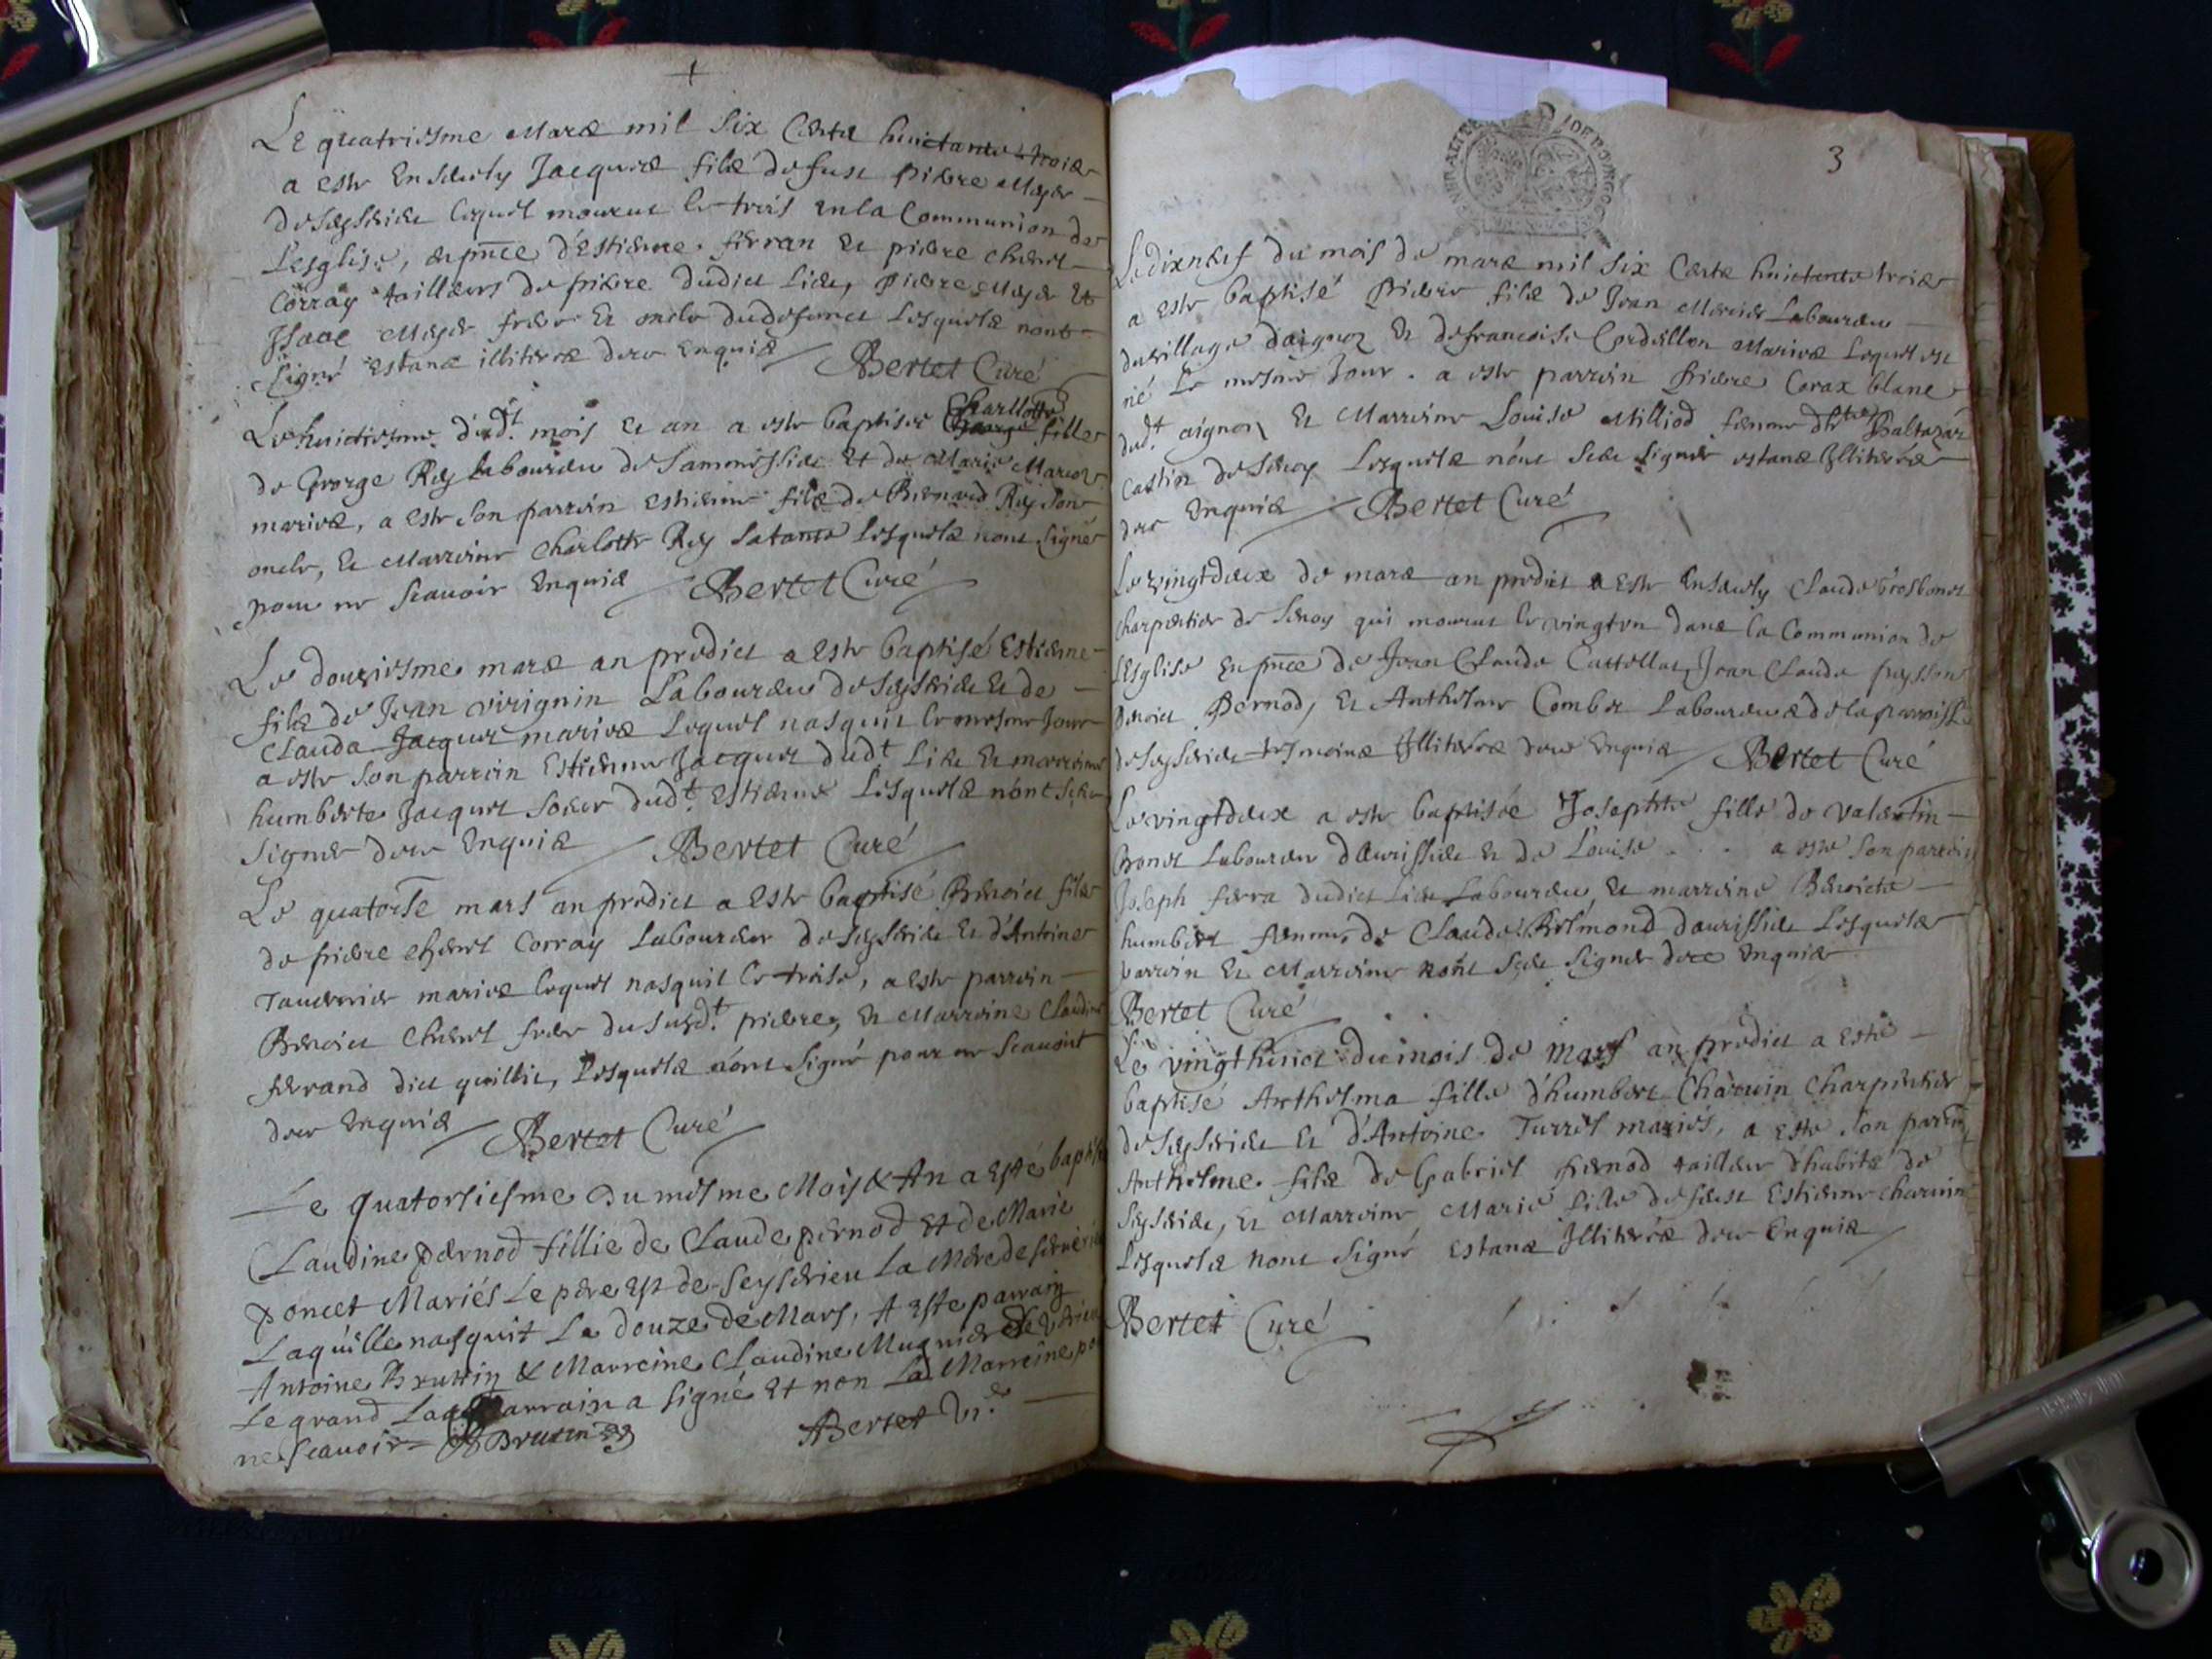 Le quatriesme Mars mil six Cents huictante trois
a este Ensevely Jacques fils de feu Pierre Meyer
de Seysseieu lequel mourut le trois en la Communion de
L'esglise, en pnce d'Estienne ferran et pierre
Corray tailleurs de pierre dudict Lieu, Pierre Meyer et
Isaac Meyer frere et oncle dudefunct Lesquels nont
signé Estans illiteres de ce Enquis Bertet Curé
Le huictiesme dudt mois et an a este baptisée Charllotte fille
de George Rey laboureur de et de Marie
mariés, a este son parrein Estienne fils de Bernard Rey son
oncle, et Marreine Charlotte Rey sa tante Lesquels nont signé
pour ne Scavoir Enquis Bertet Curé
Le douziesme mars an predict a este baptisé Estienne
fils de Jean virignin Laboureur de Seysseieu et de
Clauda Jacquet mariés Lequel nasquit le mesme Jour
a este son parrein Estienne Jacquet dudt Lieu et marreine
humberte Jacquet soeur dudt Estienne Lesquels n'ont sceu
signer de ce Enquis Bertet Curé
Le quatorse mars an predict a este baptisé Benoict fils
de pierre Corray Laboureur de Seysseieu et d'Antoine
Tavernier mariés lequel nasquit le treise, a este parrein
Benoict frere du susdt. pierre, et Marreine Claudine
ferrand dict quillit, Lesquels n'ont signé pour ne Scavoir
de ce Enquis Bertet Curé
Le quatorsiesme Du mesme Mois & An a Esté baptisé
Claudine pernod fillie de Claude pernod Et de Marie
poncet Mariés Le pere Est de Seysserieu La Mere de
Laquelle nasquit Le douze de Mars, A Este parrain
Antoine Bruttin & Marreine Claudine Mugnier
Le grand parrain a signé Et non La Marreine
ne Scavoir = Brutin ABertet
3
Le dixneuf du mois de mars mil six Cents huictante trois
a este baptisé Pierre fils de Jean Mercier Laboureur
du village d'aignoz et de francoise Cordellon Mariés Lequel est
né Le mesme Jour. a este parrein Pierre Corax blanc
dudt. aignoz et Marreine Louise Milliod femme Baltazar
Castin de Lesquels n'ont sceu signer estans Illiteres
de ce Enquis Bertet Curé
Le vingtdeux de mars an predict a este Ensevely Claude
charpentier de qui mourut le vingtun dans la Communion de
L'Esglise en pnce de Jean Claude Cattellat, Jean Claude paysson
Benoict Pernod, et Anthelme Combet Laboureurs de la parroisse
de Seysseieu tesmoins Illiteres de ce Enquis Bertet Curé
Le vingtdeux a este baptisée Josephte fille de Valentin
bonet Laboureur et de Louise . . . a este son parrein
Joseph ferra dudict Lieu Laboureur et marreine Benoicte
humbert femme de Claude Lesquels
parrein et Marreine n'ont sceu signer de ce Enquis
Bertet Curé
Le vingthuict du mois de mars an predict a esté
baptisé Anthelma fille d'humbert Charvin Charpentier
de Seysseieu et d'Antoine Turrel mariés, a este son parrein
Anthelme fils de Gabriel pernod tailleur d'habits de
Seysseieu, et Marreine Marie fille de feu Estienne Charvin
Lesquels nont signé Estans Illiteres de ce Enquis
Bertet Curé